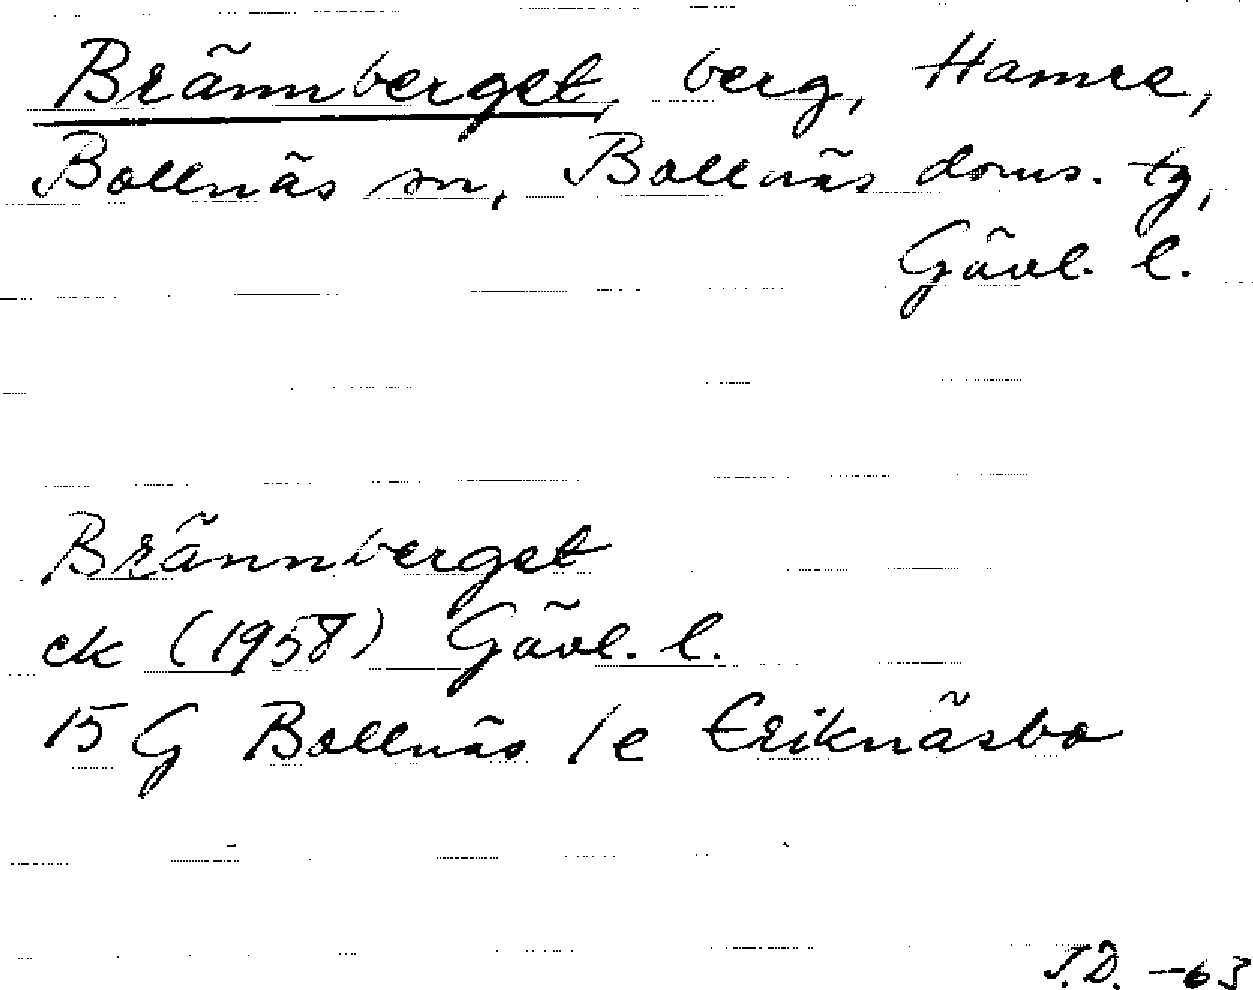 Brännberget, berg, Hamre,
Bollnäs sn, Bollnäs doms. tg,
Gävl. l.
Brännberget
ek (1958) Gävl. l.
15 G Bollnäs 1e Eriknäsbo
J.D. -63